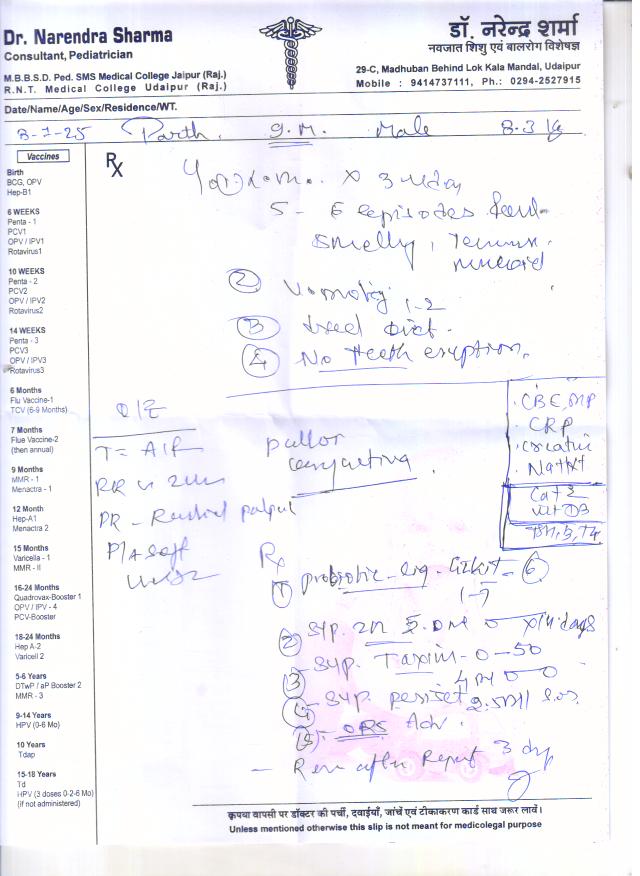 Dr. Narendra Sharma
Consultant, Pediatrician
M.B.B.S.D. Ped. SMS Medical College Jaipur (Raj.)
R.N.T. Medical College Udaipur (Raj.)
डॉ. नरेन्द्र शर्मा
नवजात शिशु एवं बालरोग विशेषज्ञ
29-C, Madhuban Behind Lok Kala Mandal, Udaipur
Mobile : 9414737111, Ph.: 0294-2527915
Date/Name/Age/Sex/Residence/WT.
8-7-25 Parth. 9.M. Male 8.3 kg
Vaccines
Birth
BCG, OPV
Hep-B1
6 WEEKS
Penta - 1
PCV1
OPV / IPV1
Rotavirus1
10 WEEKS
Penta - 2
PCV2
OPV / IPV2
Rotavirus2
14 WEEKS
Penta - 3
PCV3
OPV / IPV3
Rotavirus3
6 Months
Flu Vaccine-1
TCV (6-9 Months)
7 Months
Flue Vaccine-2
(then annual)
9 Months
MMR - 1
Menactra - 1
12 Month
Hep-A1
Menactra 2
15 Months
Varicella - 1
MMR - II
16-24 Months
Quadrovax-Booster 1
OPV / IPV - 4
PCV-Booster
18-24 Months
Hep A-2
Varicell 2
5-6 Years
DTwP / aP Booster 2
MMR - 3
9-14 Years
HPV (0-6 Mo)
10 Years
Tdap
15-18 Years
Td
HPV (3 doses 0-2-6 Mo)
(if not administered)
Rx
x 3
5 - 6 episodes foul
smelly,
mucoid
② 1-2
③ diet.
④ No teeth eruption.
O/E
T = A/F
RR
PR - Radial
P/A soft
pallor
conjuctiva.
CBC, MP
CRP
Creatin
Na+K+
Vit D3
Rx
① probiotic
② Syp. Zn 5.0ml x 14 days
③ Syp. Taxim-O-50
4 ml
④ Syp. 2.5ml S.O.S.
⑤ ORS Adv.
- Rev after Report 3 day
कृपया वापसी पर डॉक्टर की पर्ची, दवाईयाँ, जांचें एवं टीकाकरण कार्ड साथ जरूर लावें।
Unless mentioned otherwise this slip is not meant for medicolegal purpose